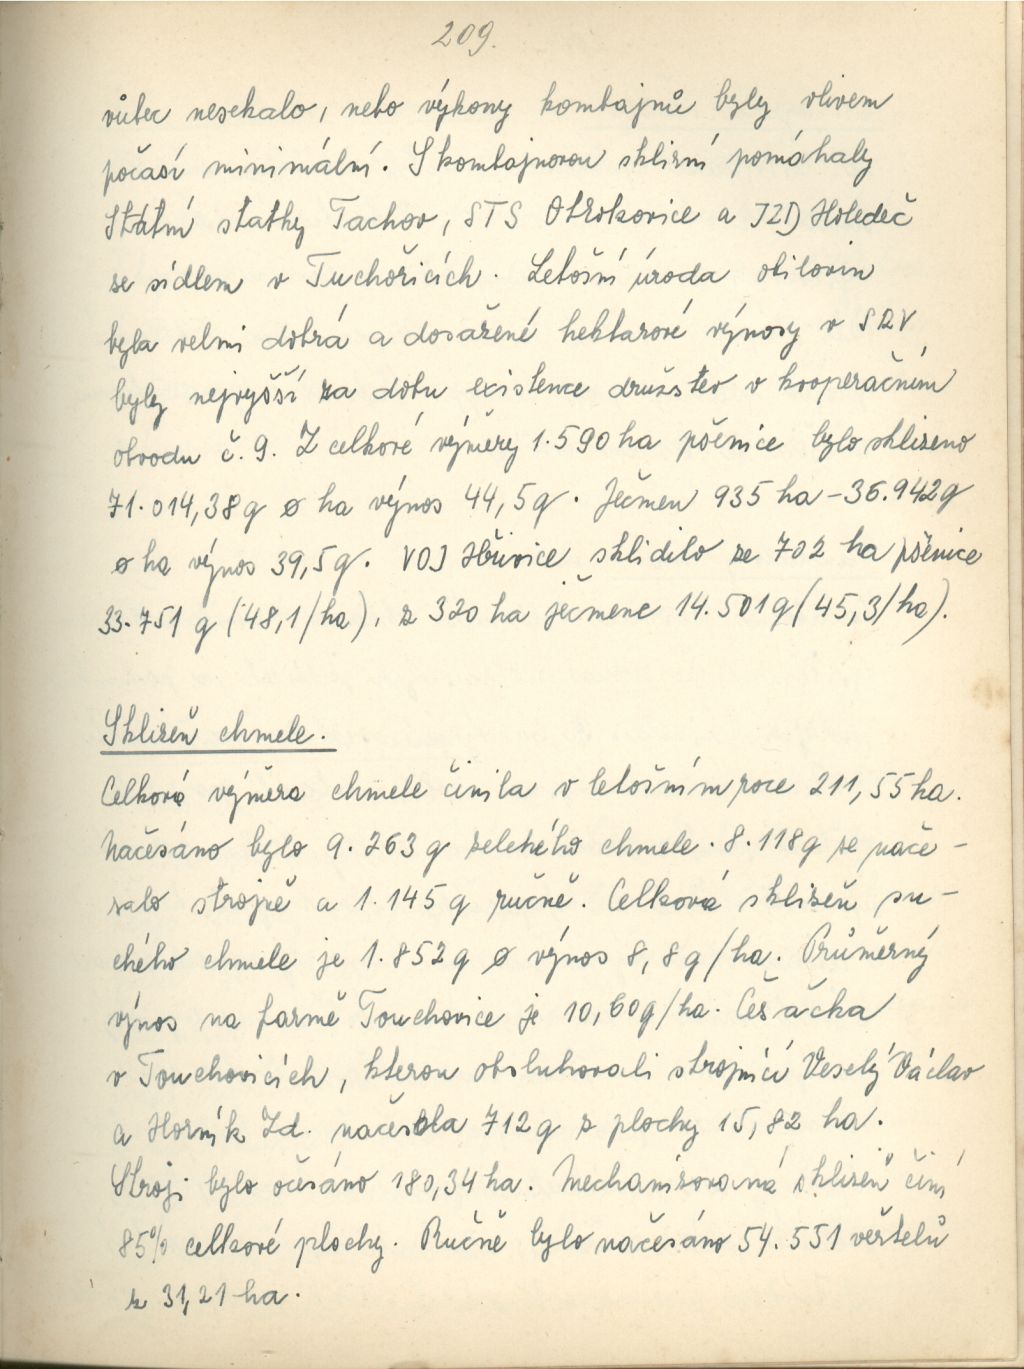 209.
vůbec nesekalo, nebo výkony kombajnů byly vlivem
počasí minimální. S kombajnovou sklizní pomáhaly
Státní statky Tachov, STS Otrokovice a JZD Holedeč
se sídlem v Tuchořicích. Letošní úroda obilovin
byla velmi dobrá a dosažené hektarové výnosy v SRV
byly nejvyšší za dobu existence družstev v kooperačním
obvodu č. 9. Z celkové výměry 1.590 ha pšenice bylo sklizeno
71.014,38 q ø ha výnos 44,5 q. Ječmen 935 ha - 36.942 q
ø ha výnos 39,5 q. VOJ Hřivice sklidilo ze 702 ha pšenice
33.751 q (48,1/ha), z 320 ha ječmene 14.501 q (45,3/ha).
Sklizeň chmele.
Celková výměra chmele činila v letošním roce 211,55 ha.
Načesáno bylo 9.263 q zeleného chmele. 8.118 q se nače-
salo strojně a 1.145 q ručně. Celková sklizeň su-
chého chmele je 1.852 q ø výnos 8,8 q/ha. Průměrný
výnos na farmě Touchovice je 10,60 q/ha. Česačka
v Touchovicích, kterou obsluhovali strojníci Veselý Václav
a Horník Zd. načesala 712 q z plochy 15,82 ha.
Stroji bylo očesáno 180,34 ha. Mechanizovaná sklizeň činí
85% celkové plochy. Ručně bylo načesáno 54.551 věrtelů
z 31,21 ha.